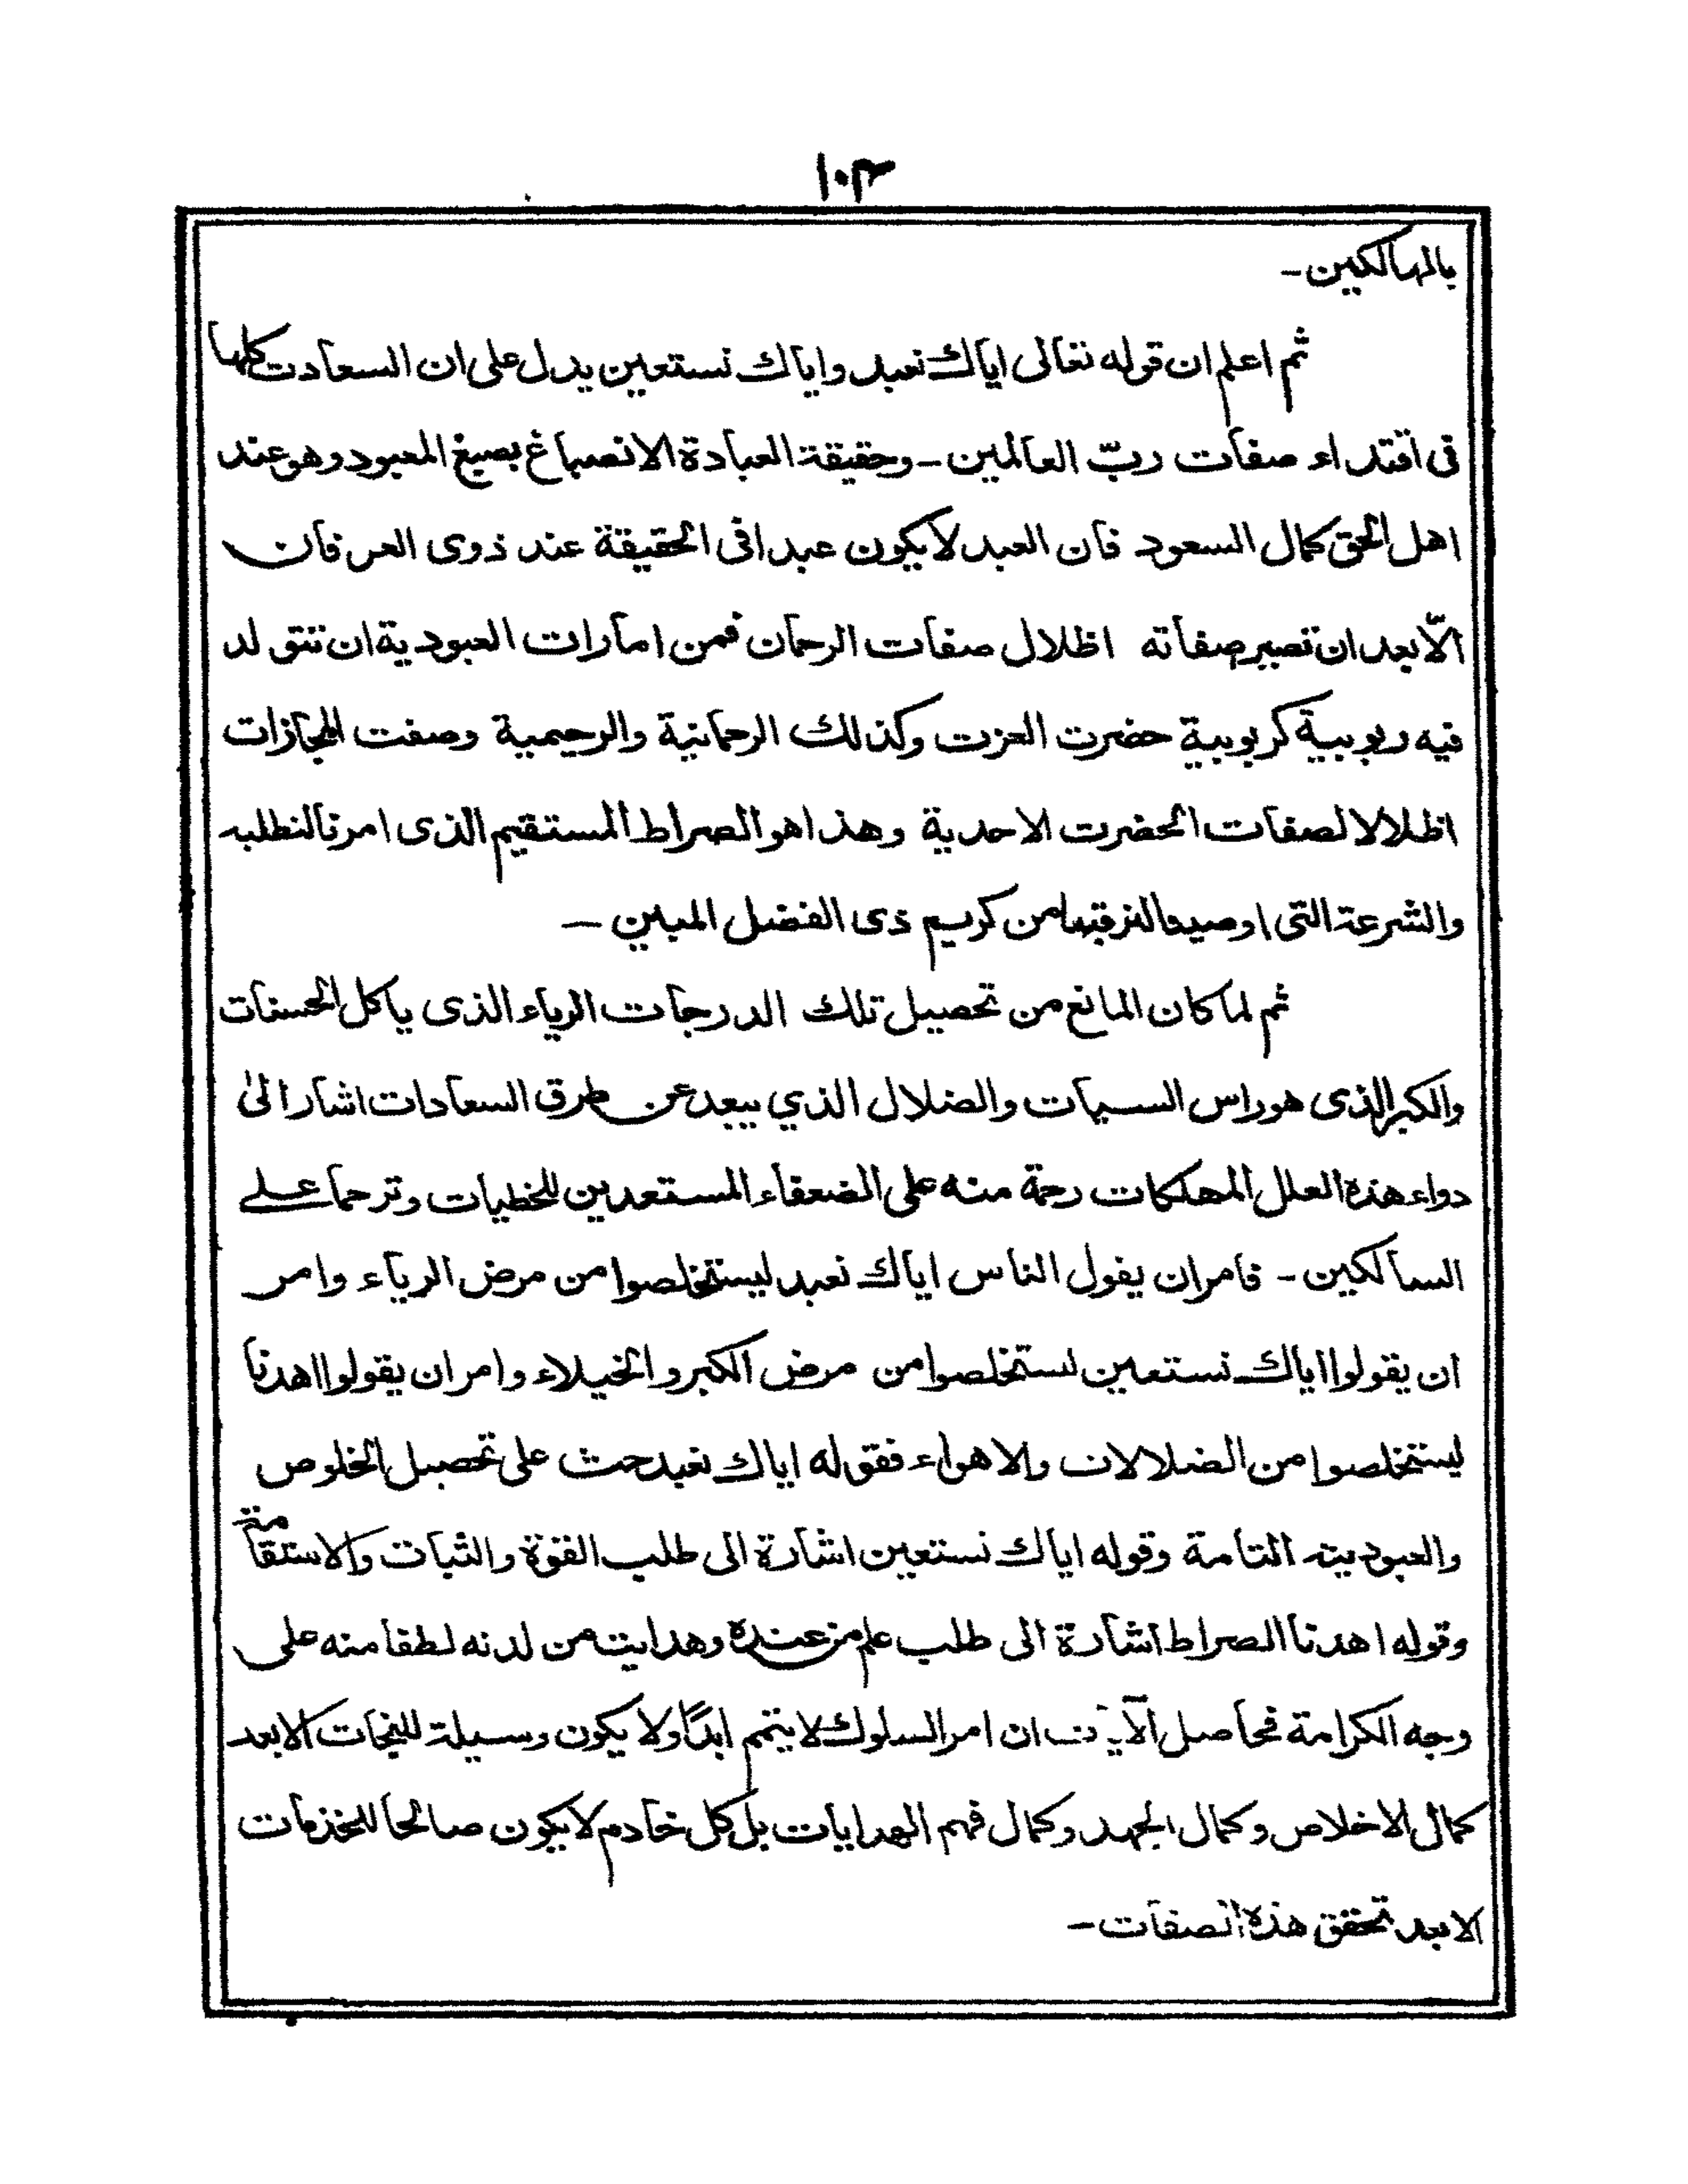 ١٠٣
بالهالكين -
ثم اعلم ان قوله تعالى اياك نعبد واياك نستعين يدل على ان السعادت كلها
فى اقتداء صفات ربّ العالمين - وحقيقة العبادة الانصباغ بصبغ المعبود وهو عند
اهل الحق كمال السعود فان العبد لا يكون عبدا فى الحقيقة عند ذوى العرفان
الّا بعد ان تصير صفاته اظلال صفات الرحمان فمن امارات العبودية ان تتولد
فيه ربوبية كربوبية حضرت العزت وكذلك الرحمانية والرحيمية وصفت المجازات
اظلالا لصفات الحضرت الاحدية وهذا هو الصراط المستقيم الذى امرنا لنطلبه
والشرعة التى اوصينا لنرقبها من كريم ذى الفضل المبين —
ثم لما كان المانع من تحصيل تلك الدرجات الرياء الذى ياكل الحسنات
والكبر الذى هو راس السيات والضلال الذي يبعد عن طرق السعادات اشار الىٰ
دواء هذه العلل المهلكات رحمة منه على الضعفاء المستعدين للخطيات وترحما على
السالكين - فامر ان يقول الناس اياك نعبد ليستخلصوا من مرض الرياء وامر
ان يقولوا اياك نستعين ليستخلصوا من مرض الكبر والخيلاء وامر ان يقولوا اهدنا
ليستخلصوا من الضلالات والاهواء فقوله اياك نعبد حث على تحصيل الخلوص
والعبودية التامة وقوله اياك نستعين اشارة الى طلب القوة والثبات والاستقامة
وقوله اهدنا الصراط اشارة الى طلب علم من عنده وهدايت من لدنه لطفا منه على
وجه الكرامة فحاصل الآيات ان امر السلوك لا يتم ابدًا ولا يكون وسيلة للنجات الا بعد
كمال الاخلاص وكمال الجهد وكمال فهم الهدايات بل كل خادم لا يكون صالحا للخدمات
الا بعد تحقق هذه الصفات -